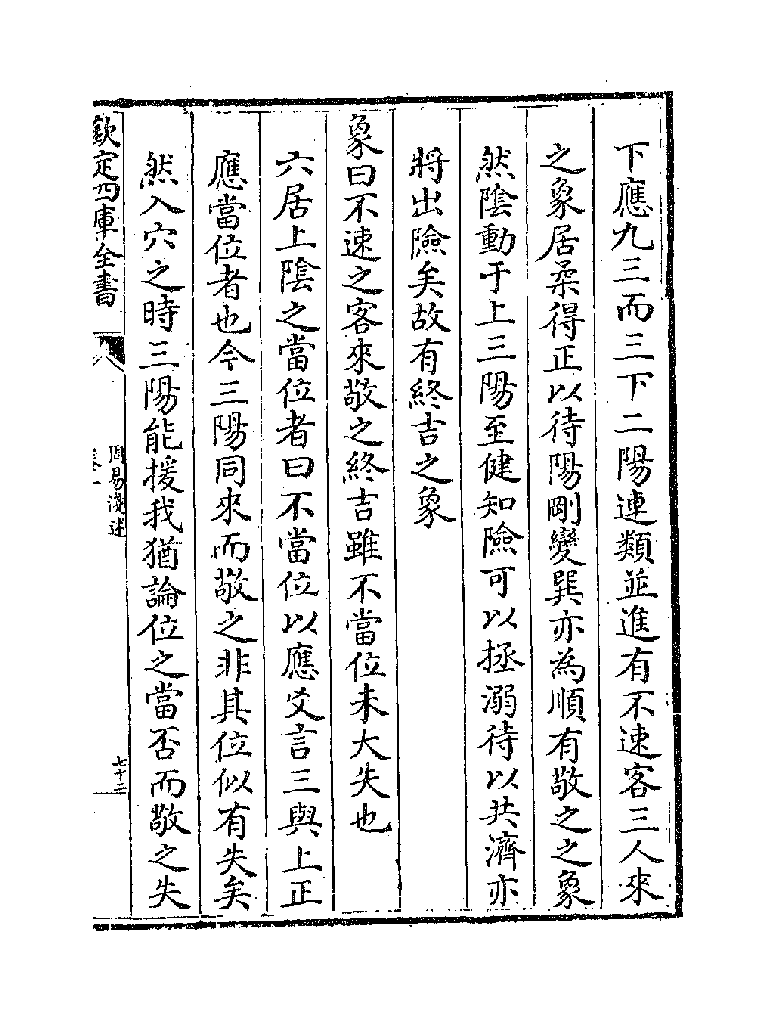 下應九三而三下二陽連類並進有不速客三人來
之象居柔得正以待陽剛變巽亦為順有敬之之象
然陰動于上三陽至健知險可以拯溺待以共濟亦
將出險矣故有終吉之象
象曰不速之客來敬之終吉雖不當位未大失也
六居上陰之當位者曰不當位以應爻言三與上正
應當位者也今三陽同來而敬之非其位似有失矣
然入穴之時三陽能援我猶論位之當否而敬之失
欽定四庫全書
周易淺述
卷一
七十三